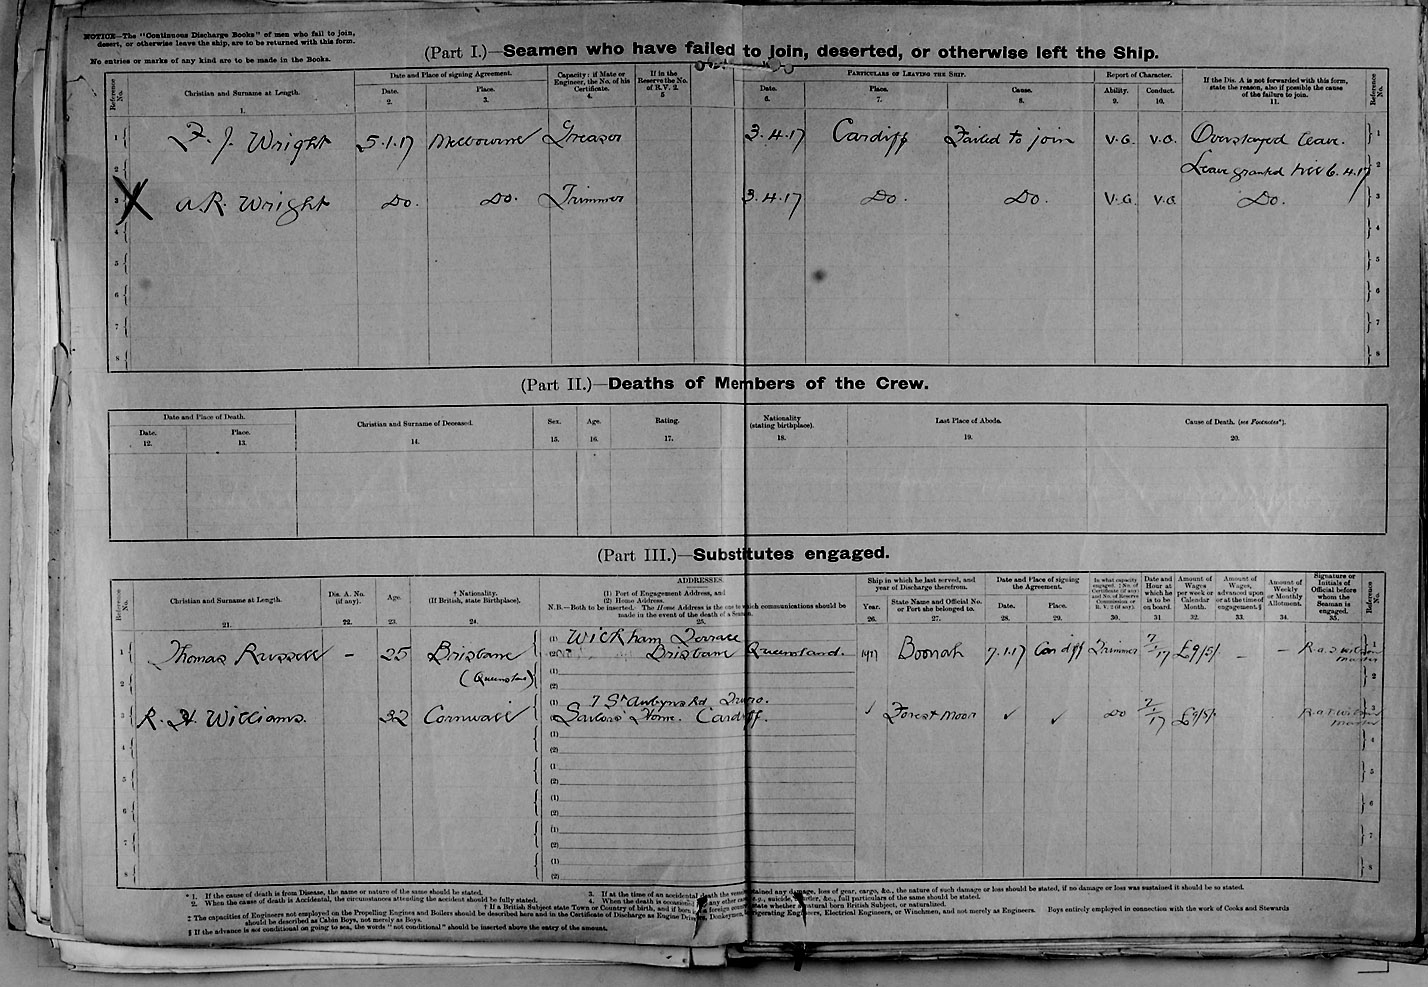 NOTICE—The "Continuous Discharge Books" of men who fail to join,
desert, or otherwise leave the ship, are to be returned with this form.
No entries or marks of any kind are to be made in the Books.
(Part I.)—Seamen who have failed to join, deserted, or otherwise left the Ship.
Reference No. Christian and Surname at Length. 1.
Date and Place of signing Agreement. Date. 2. Place. 3.
Capacity: if Mate or Engineer, the No. of his Certificate. 4.
If in the Reserve the No. of R.V. 2. 5
Particulars of Leaving the Ship. Date. 6. Place. 7. Cause. 8.
Report of Character. Ability. 9. Conduct. 10.
If the Dis. A is not forwarded with this form, state the reason, also if possible the cause of the failure to join. 11.
Reference No.
1 F. J. Wright 5.1.17 Melbourne Greaser 3.4.17 Cardiff Failed to join V.G. V.G. Overstayed leave. 1
2 Leave granted till 6.4.17 2
X 3 A.R. Wright Do. Do. Trimmer 3.4.17 Do. Do. V.G. V.G. Do. 3
4 4
5 5
6 6
7 7
8 8
(Part II.)—Deaths of Members of the Crew.
Date and Place of Death. Date. 12. Place. 13.
Christian and Surname of Deceased. 14.
Sex. 15. Age. 16. Rating. 17.
Nationality (stating birthplace). 18.
Last Place of Abode. 19.
Cause of Death. (see Footnotes*). 20.
(Part III.)—Substitutes engaged.
Reference No. Christian and Surname at Length. 21.
Dis. A. No. (if any). 22. Age. 23.
† Nationality. (If British, state Birthplace). 24.
ADDRESSES.
(1) Port of Engagement Address, and
(2) Home Address.
N.B.—Both to be inserted. The Home Address is the one to which communications should be
made in the event of the death of a Seaman.
25.
Ship in which he last served, and year of Discharge therefrom. Year. 26. State Name and Official No. or Port she belonged to. 27.
Date and Place of signing the Agreement. Date. 28. Place. 29.
In what capacity engaged, ‡ No. of Certificate (if any) and No. of Reserve Commission or R. V. 2 (if any). 30.
Date and Hour at which he is to be on board. 31
Amount of Wages per week or Calendar Month. 32.
Amount of Wages, advanced upon or at the time of engagement.§ 33.
Amount of Weekly or Monthly Allotment. 34.
Signature or Initials of Official before whom the Seaman is engaged. 35.
Reference No.
1 Thomas Russell – 25 Brisbane (1) Wickham Terrace
(2) Brisbane Queensland. 1917 Boonah 7.1.17 Cardiff Trimmer 7/1/17 £9/5/. – – Master 1
2 (Queensland) (1) (2) 2
3 R. H. Williams. 32 Cornwall (1) 7 St Aubyns Rd Truro.
(2) Sailors' Home. Cardiff. ✓ Forest Moor ✓ ✓ Do 7/1/17 £9/5/. Master 3
4 (1) (2) 4
5 (1) (2) 5
6 (1) (2) 6
7 (1) (2) 7
8 (1) (2) 8
* 1. If the cause of death is from Disease, the name or nature of the same should be stated.
2. When the cause of death is Accidental, the circumstances attending the accident should be fully stated.
3. If at the time of an accidental death the vessel sustained any damage, loss of gear, cargo, &c., the nature of such damage or loss should be stated, if no damage or loss was sustained it should be so stated.
4. When the death is occasioned by any other cause, e.g., suicide, murder, &c., full particulars of the same should be stated.
† If a British Subject state Town or Country of birth, and if born in a foreign country state whether a natural born British Subject, or naturalized.
‡ The capacities of Engineers not employed on the Propelling Engines and Boilers should be described here and in the Certificate of Discharge as Engine Drivers, Donkeymen, Refrigerating Engineers, Electrical Engineers, or Winchmen, and not merely as Engineers. Boys entirely employed in connection with the work of Cooks and Stewards
should be described as Cabin Boys, not merely as Boys.
§ If the advance is not conditional on going to sea, the words "not conditional" should be inserted above the entry of the amount.